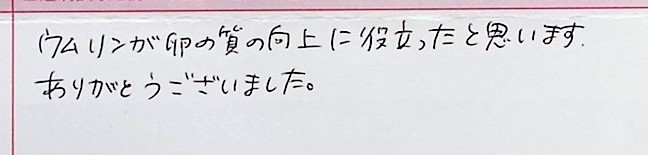 ウムリンが卵の質の向上に役立ったと思います.
ありがとうございました。